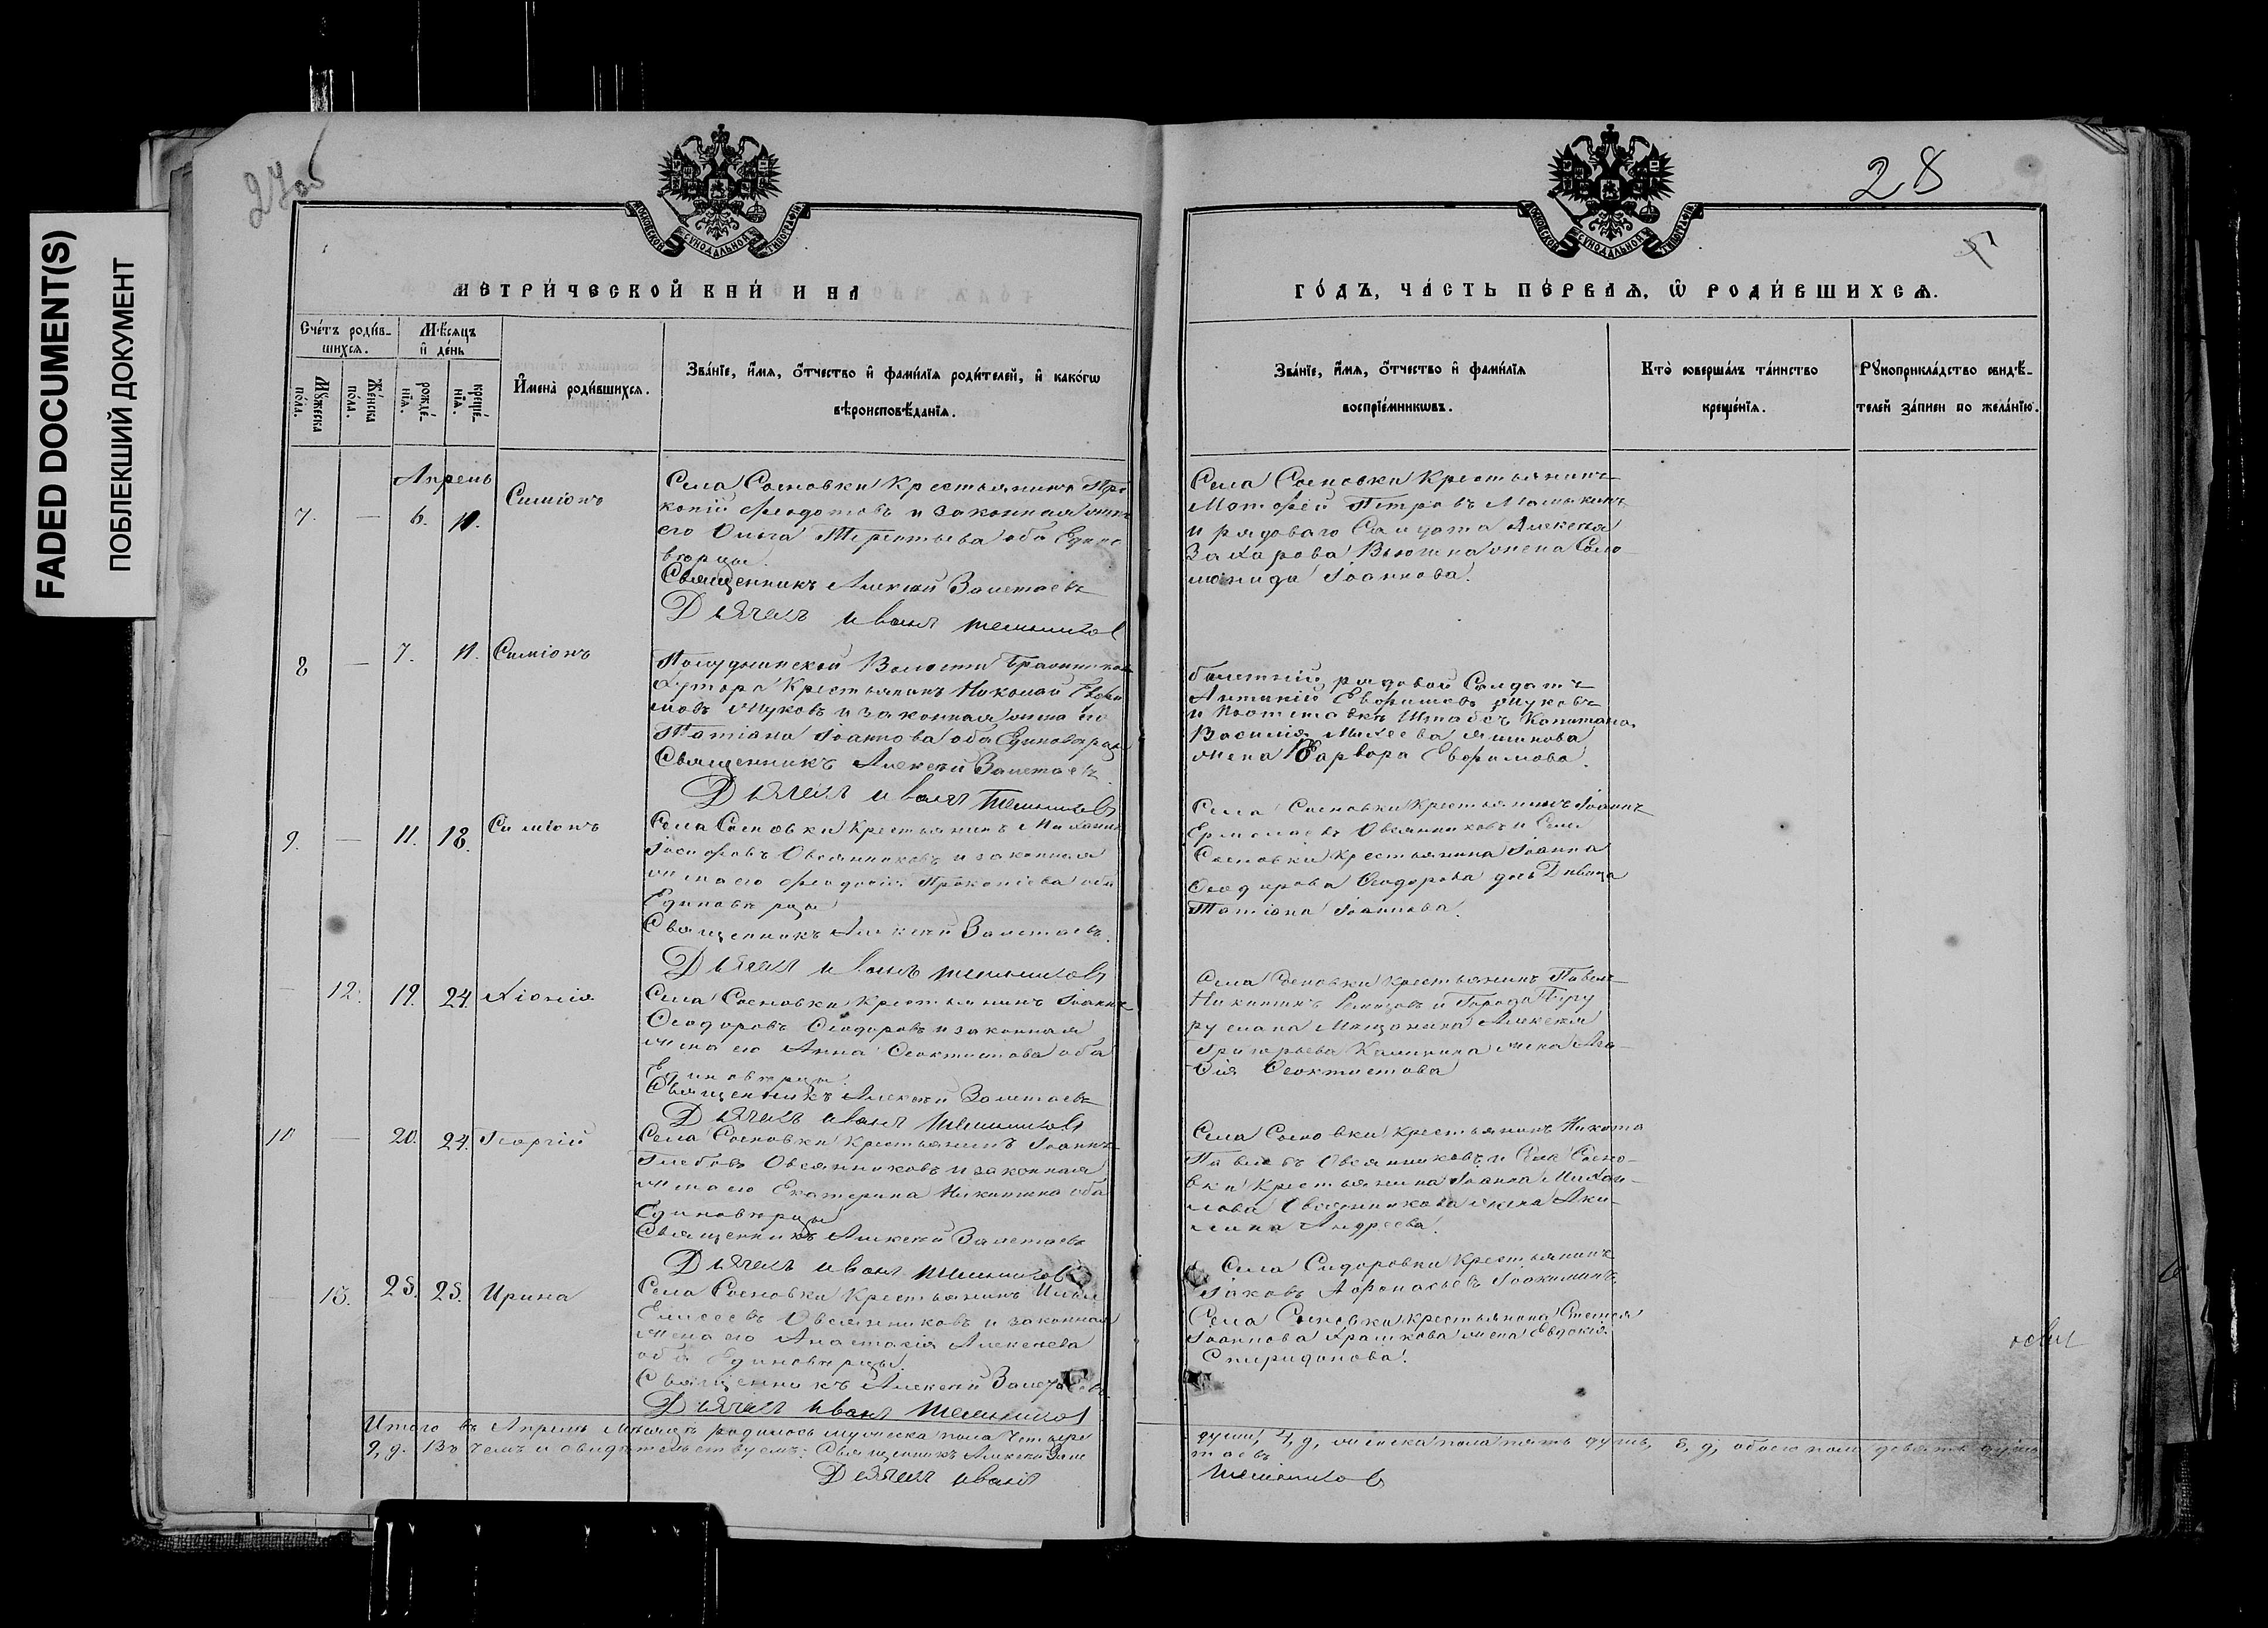 FADED DOCUMENT(S)
ПОБЛЕКШИЙ ДОКУМЕНТ
27об
МОСКОВСКОЙ СѴНОДАЛЬНОЙ ТИПОГРАФІИ
МЕТРИ́ЧЕСКОЙ КНИ И НА
Сче́тъ роди́в-
шихсѧ.
Мѣ́сѧцъ
и҆ де́нь
Мꙋ́жеска по́ла.
Же́нска по́ла.
рожде́-нїѧ.
креще́-нїѧ.
И҆мена̀ роди́вшихсѧ.
Зва́нїе, и҆́мѧ, ѻ҆́тчество и҆ фами́лїѧ роди́телей, и҆ како́гѡ
вѣроисповѣ́данїѧ.
Апрель
7. — 6. 11. Симіонъ
Села Сосновки Крестьянинъ Про
копій Феодотовъ и законная жена
его Ольга Терентьева оба Едино
верцы.
Священникъ Алексей Залетаевъ
Дьячекъ Иванъ
8 — 7. 11. Симіонъ
Полуднинской Волости
Хутора Крестьянинъ Николай Евфи
мовъ Жуковъ и законная жена его
Татіана Іоаннова оба Единоверцы
Священникъ Алексей Залетаевъ
Дьячекъ Иванъ
9. — 11. 18. Симіонъ
Села Сосновки Крестьянинъ Михаилъ
Іосифовъ Овсянниковъ и законная
жена его Феодосія Прокопіева оба
Единоверцы
Священникъ Алексей Залетаевъ.
Дьячекъ Иванъ
— 12. 19. 24. Хіонія
Села Сосновки Крестьянинъ Іоаннъ
Феодоровъ Феодоровъ и законная
жена его Анна Феоктистова оба
Единоверцы.
Священникъ Алексей Залетаевъ
Дьячекъ Иванъ
10 — 20. 24. Георгій
Села Сосновки Крестьянинъ Іоаннъ
Глебовъ Овсянниковъ и законная
жена его Екатерина Никитина оба
Единоверцы
Священникъ Алексей Залетаевъ
Дьячекъ Иванъ
— 13. 25. 25. Ирина
Села Сосновки Крестьянинъ Илья
Елисеевъ Овсянниковъ и законная
жена его Анастасія Алексеева
оба Единоверцы.
Священникъ Алексей Залетаевъ
Дьячекъ Иванъ
Итого въ Апреле месяце родилось мужеска пола четыре
9, д. Въ чемъ и свидетельствуемъ: Священникъ Алексей Зале
Дьячекъ Иванъ
28
МОСКОВСКОЙ СѴНОДАЛЬНОЙ ТИПОГРАФІИ
ГО́ДЪ, ЧА́СТЬ ПЕ́РВАѦ, Ѡ҆ РОДИ́ВШИХСѦ.
Зва́нїе, и҆́мѧ, ѻ҆́тчество и҆ фами́лїѧ
воспрїе́мникѡвъ.
Кто̀ соверша́лъ та́инство
креще́нїѧ.
Рꙋкоприкла́дство свидѣ́-
телей за́писи по жела́нїю.
Села Сосновки Крестьянинъ
Матфей Петровъ Малыкинъ
и рядоваго Солдата Алексея
Захарова Вьюшна жена Соло
монида Іоаннова.
билетній рядовой Солдатъ
Антиній Евфимовъ Жуковъ
и Штабсъ Капитана
Василія Михеева
жена Варвара Евфимова.
Села Сосновки Крестьянинъ Іоаннъ
Ермолаевъ Овсянниковъ и Села
Сосновки Крестьянина Іоанна
Феодорова Феодорова дочь Девица
Татіана Іоаннова.
Села Сосновки Крестьянинъ Павелъ
Никитинъ Ремизовъ и Города Бугу
руслана Мещанина Алексея
Григорьева Калинина жена Ага
фія Феоктистова
Села Сосновки Крестьянинъ Никита
Павловъ Овсянниковъ и Села Сосно-
вки Крестьянина Іоанна Михаи-
лова Овсянникова жена Аки-
лина Андреева.
Села Сидоровки Крестьянинъ
Іаковъ Афонасьевъ Іоакиминъ
Села Сосновки крестьянина Сысоя
Іоаннова Храмкова жена Евдокія
Спиридонова.
души, 4, д, женска пола пять душъ, 5, д, обоего пола девять душъ
таевъ